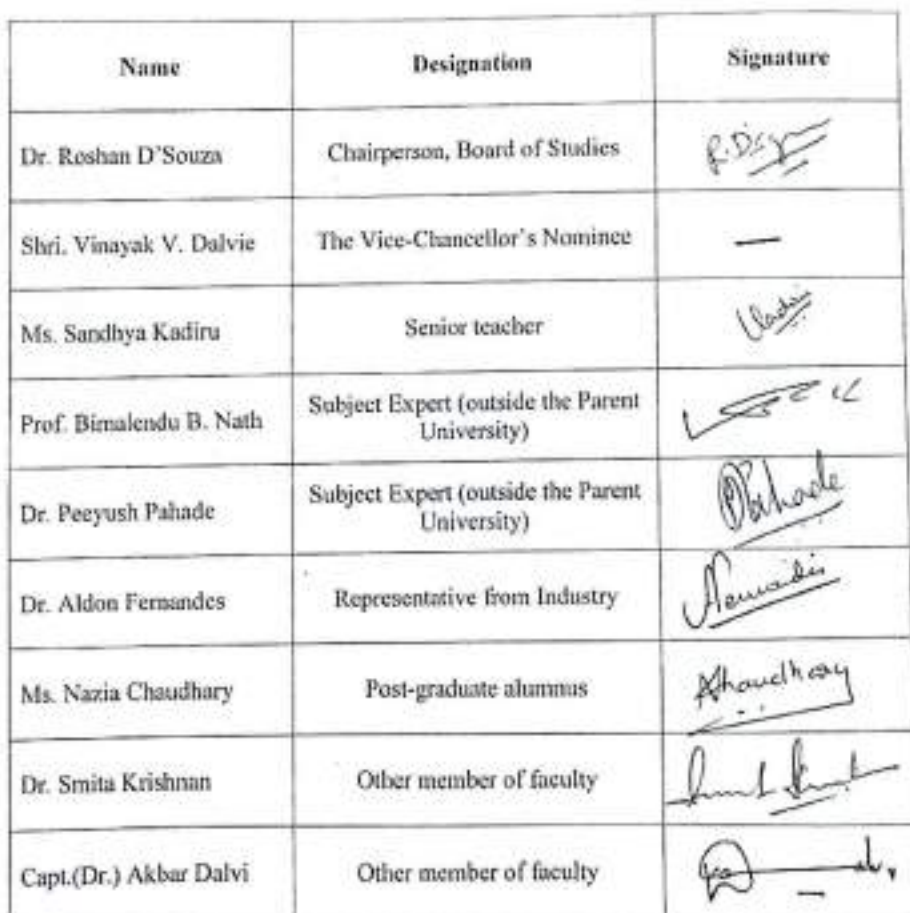 Name Designation Signature
Dr. Roshan D'Souza Chairperson, Board of Studies
Shri. Vinayak V. Dalvie The Vice-Chancellor's Nominee —
Ms. Sandhya Kadiru Senior teacher
Prof. Bimalendu B. Nath Subject Expert (outside the Parent
University)
Dr. Peeyush Pahade Subject Expert (outside the Parent
University) Pahade
Dr. Aldon Fernandes Representative from Industry
Ms. Nazia Chaudhary Post-graduate alumnus
Dr. Smita Krishnan Other member of faculty
Capt.(Dr.) Akbar Dalvi Other member of faculty